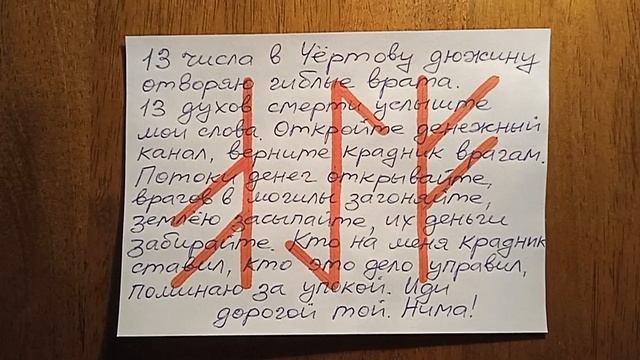 13 числа в Чёртову дюжину
отворяю гиблые врата.
13 духов смерти услыште
мои слова. Откройте денежный
канал, верните крадник врагам.
Потоки денег открывайте,
врагов в могилы загоняйте,
землёю засыпайте, их деньги
забирайте. Кто на меня крадник
ставил, кто это дело управил,
поминаю за упокой. Иди
дорогой той. Нима!